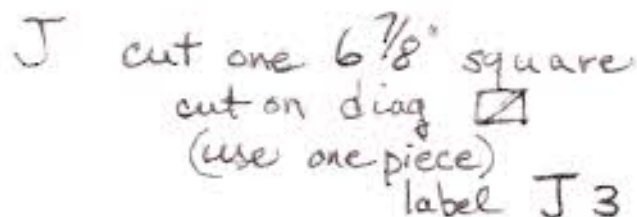 J cut one 6 7/8" square
cut on diag
(use one piece)
label J3